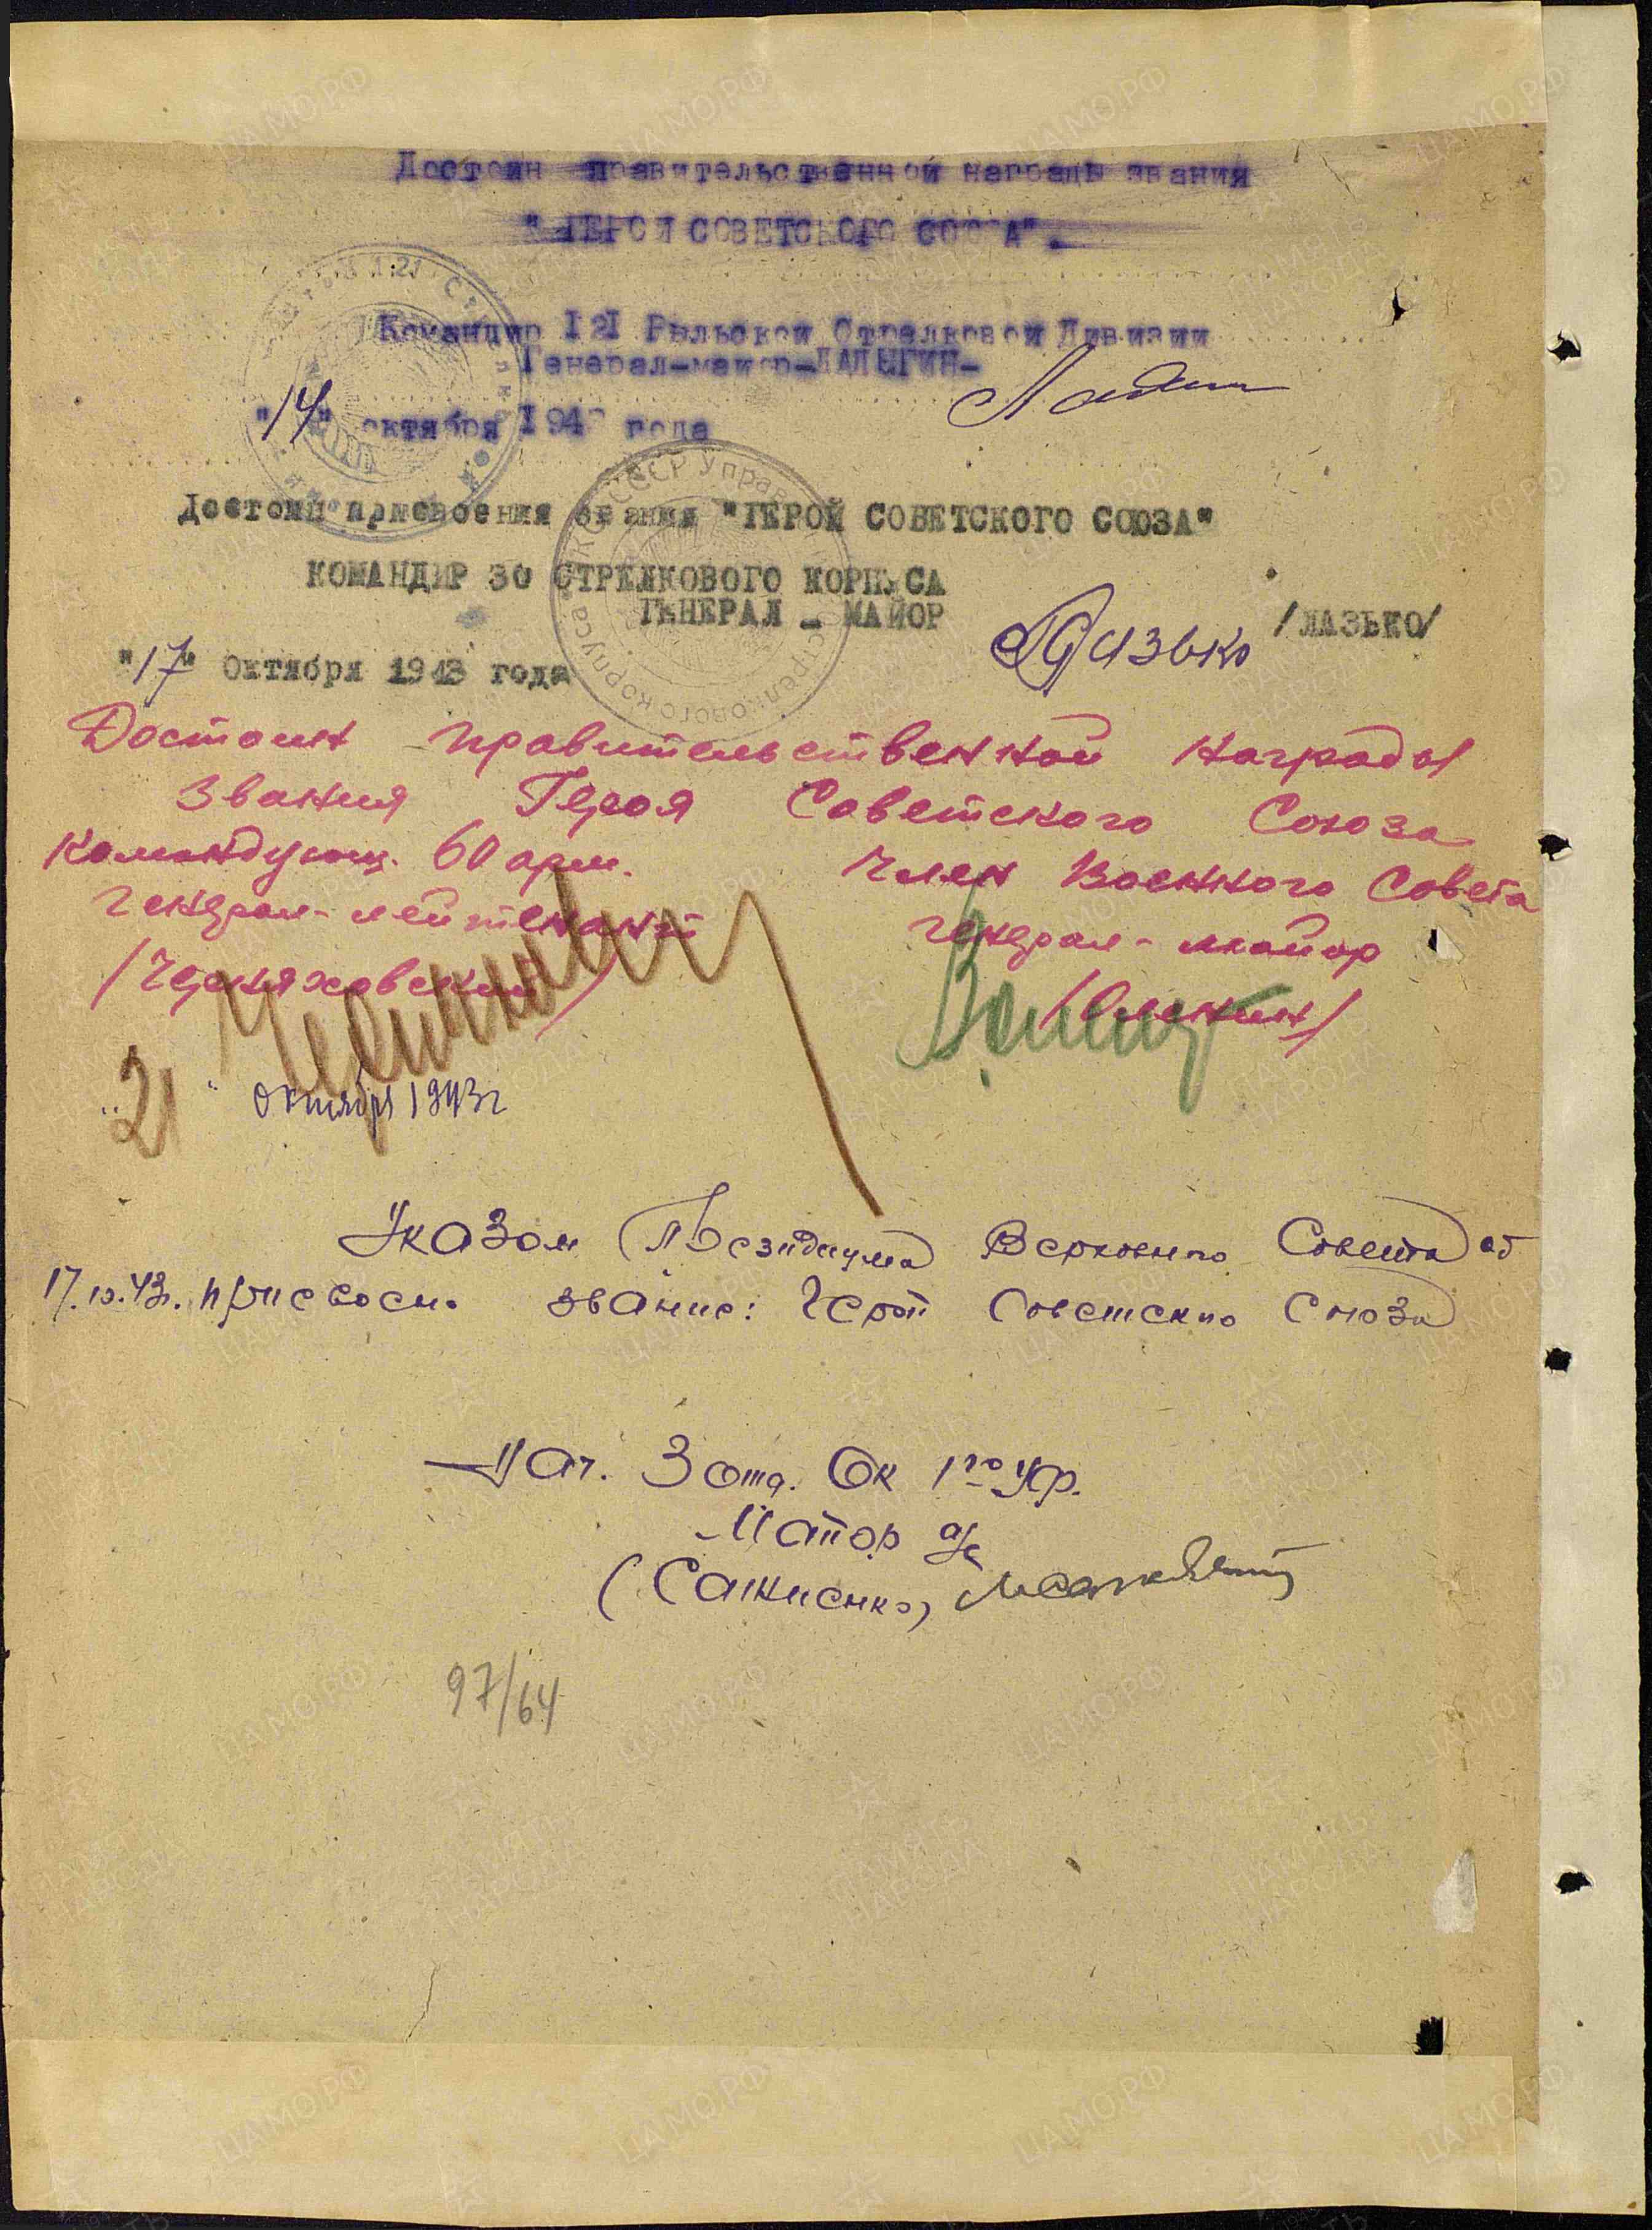 Достоин правительственной награды звания
"ГЕРОЙ СОВЕТСКОГО СОЮЗА".
Командир 121 Рыльской Стрелковой Дивизии
Генерал-майор-ЛАДЫГИН-
"14" октября 1943 года
Достоин присвоения звания "ГЕРОЙ СОВЕТСКОГО СОЮЗА"
КОМАНДИР 30 СТРЕЛКОВОГО КОРПУСА
ГЕНЕРАЛ - МАЙОР Лазько /ЛАЗЬКО/
"17" Октября 1943 года
Достоин правительственной награды
звания Героя Советского Союза
Командующ. 60 арм. Член Военного Совета
генерал-лейтенант генерал-майор
/Черняховский/ /Оленин/
"21" октября 1943 г
Указом Президиума Верховного Совета от
17.10.43г. присвоено звание: Герой Советского Союза
Нач. 3 отд. Ок 1го Укр.
Майор а/с
(Саниенко)
97/64